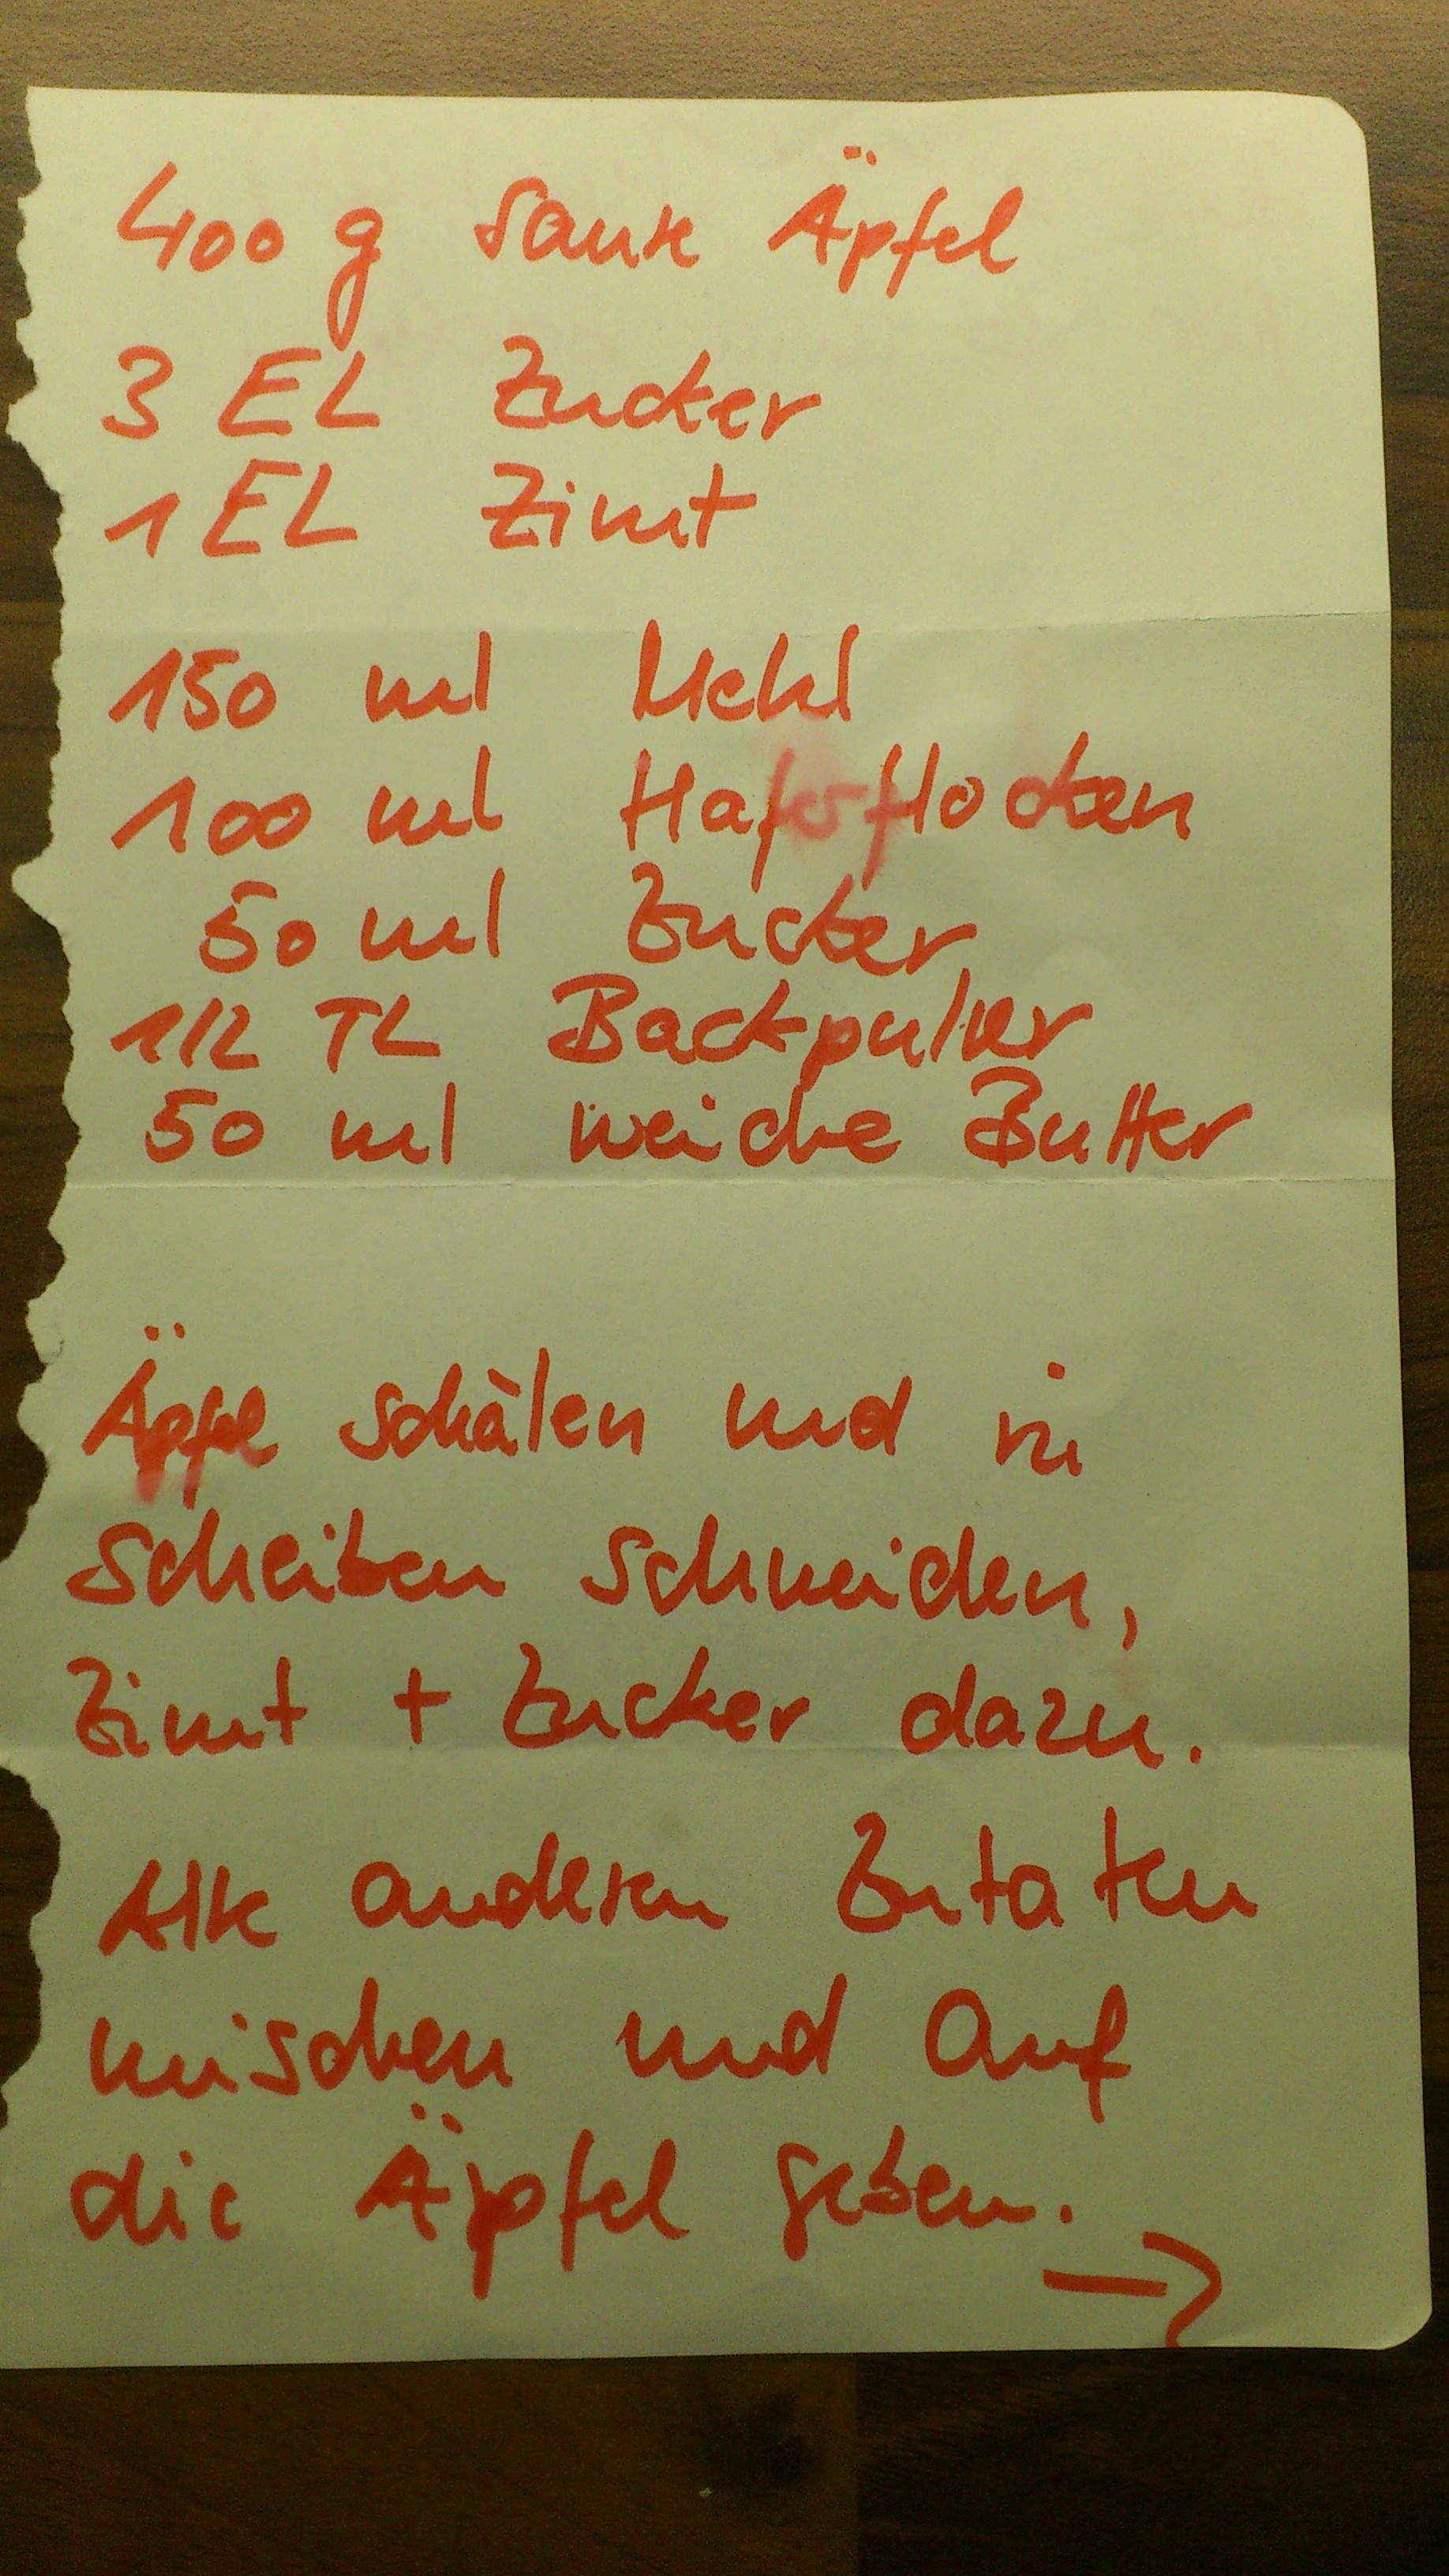 400 g saure Äpfel
3 EL Zucker
1 EL Zimt
150 ml Mehl
100 ml Haferflocken
50 ml Zucker
1/2 TL Backpulver
50 ml weiche Butter
Äpfel schälen und in
Scheiben schneiden,
Zimt + Zucker dazu.
Alle anderen Zutaten
mischen und auf
die Äpfel geben.
→